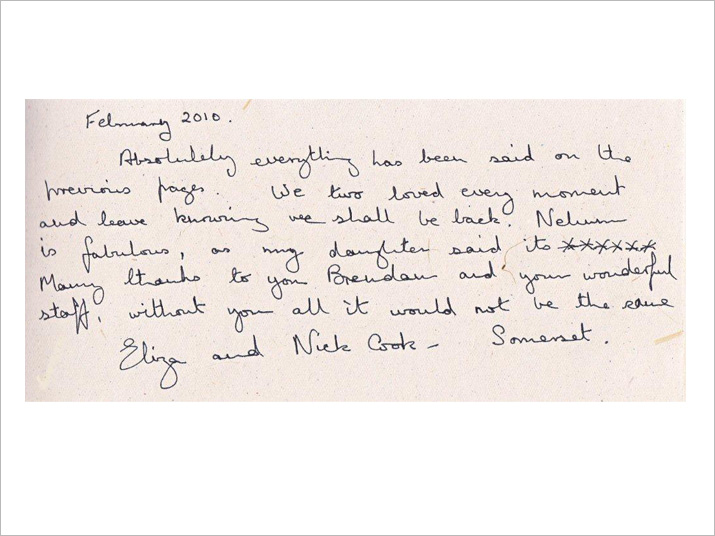 February 2010.
Absolutely everything has been said on the
previous pages. We two loved every moment
and leave knowing we shall be back. Nelum
is fabulous, as my daughter said its ******
Many thanks to you Brendan and your wonderful
staff, without you all it would not be the same
Eliza and Nick Cook – Somerset.